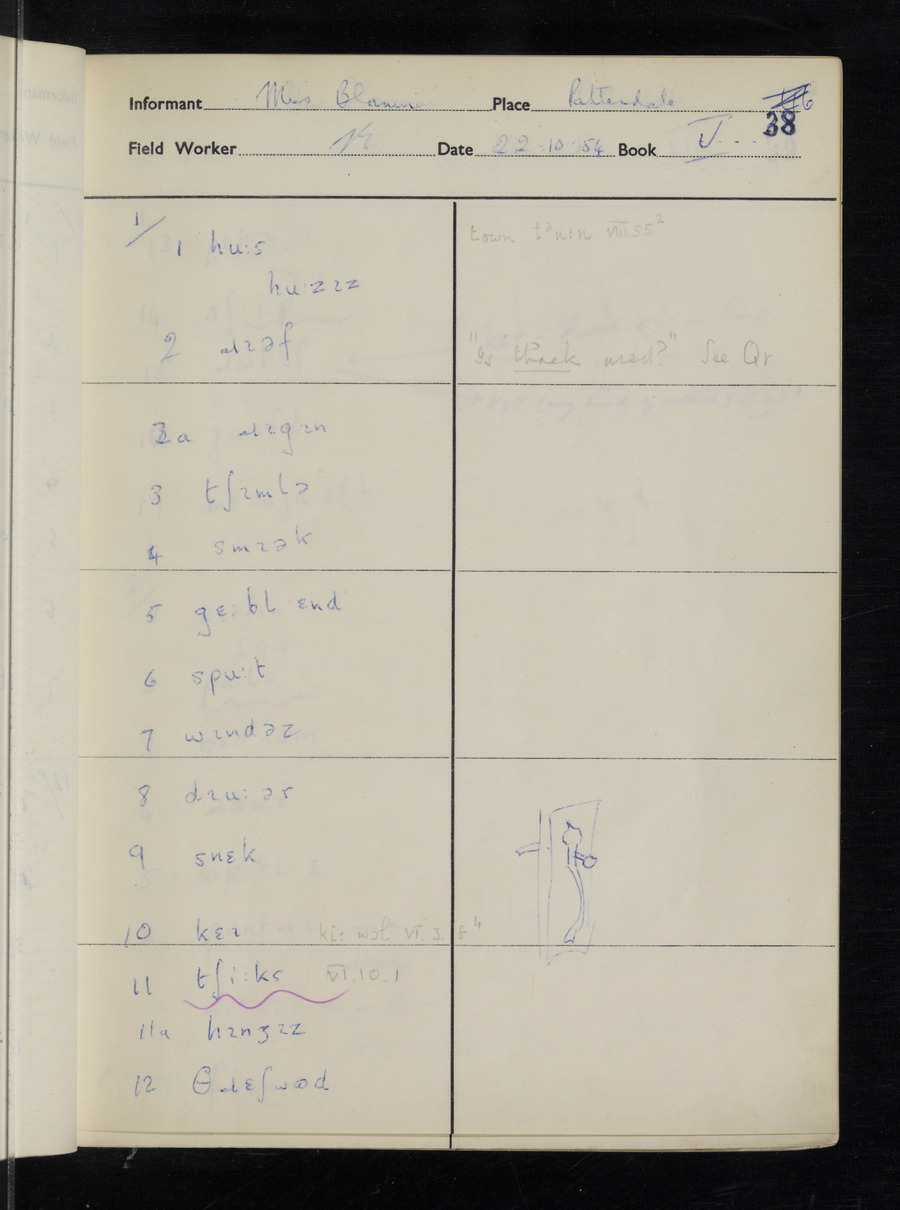 Informant Miss Place Patterdale
38
Field Worker Date 22.10.54 Book V
1/ 1 hu:s
hu:zɪz
town VIII.5.5²
2 ɹɪəf
"Is thack used?" See Qr
3a ɹɪgɪn
3 tʃɪmlə
4 smɪək
5 gɛ:bl ɛnd
6 spu:t
7 wɪndəz
8 dɪu:ər
9 snɛk
10 kɛɪ ki: VI.3.
11 tʃi:ks VI.10.1
11a hɪnʒɪz
12 θɹɛʃwɒd